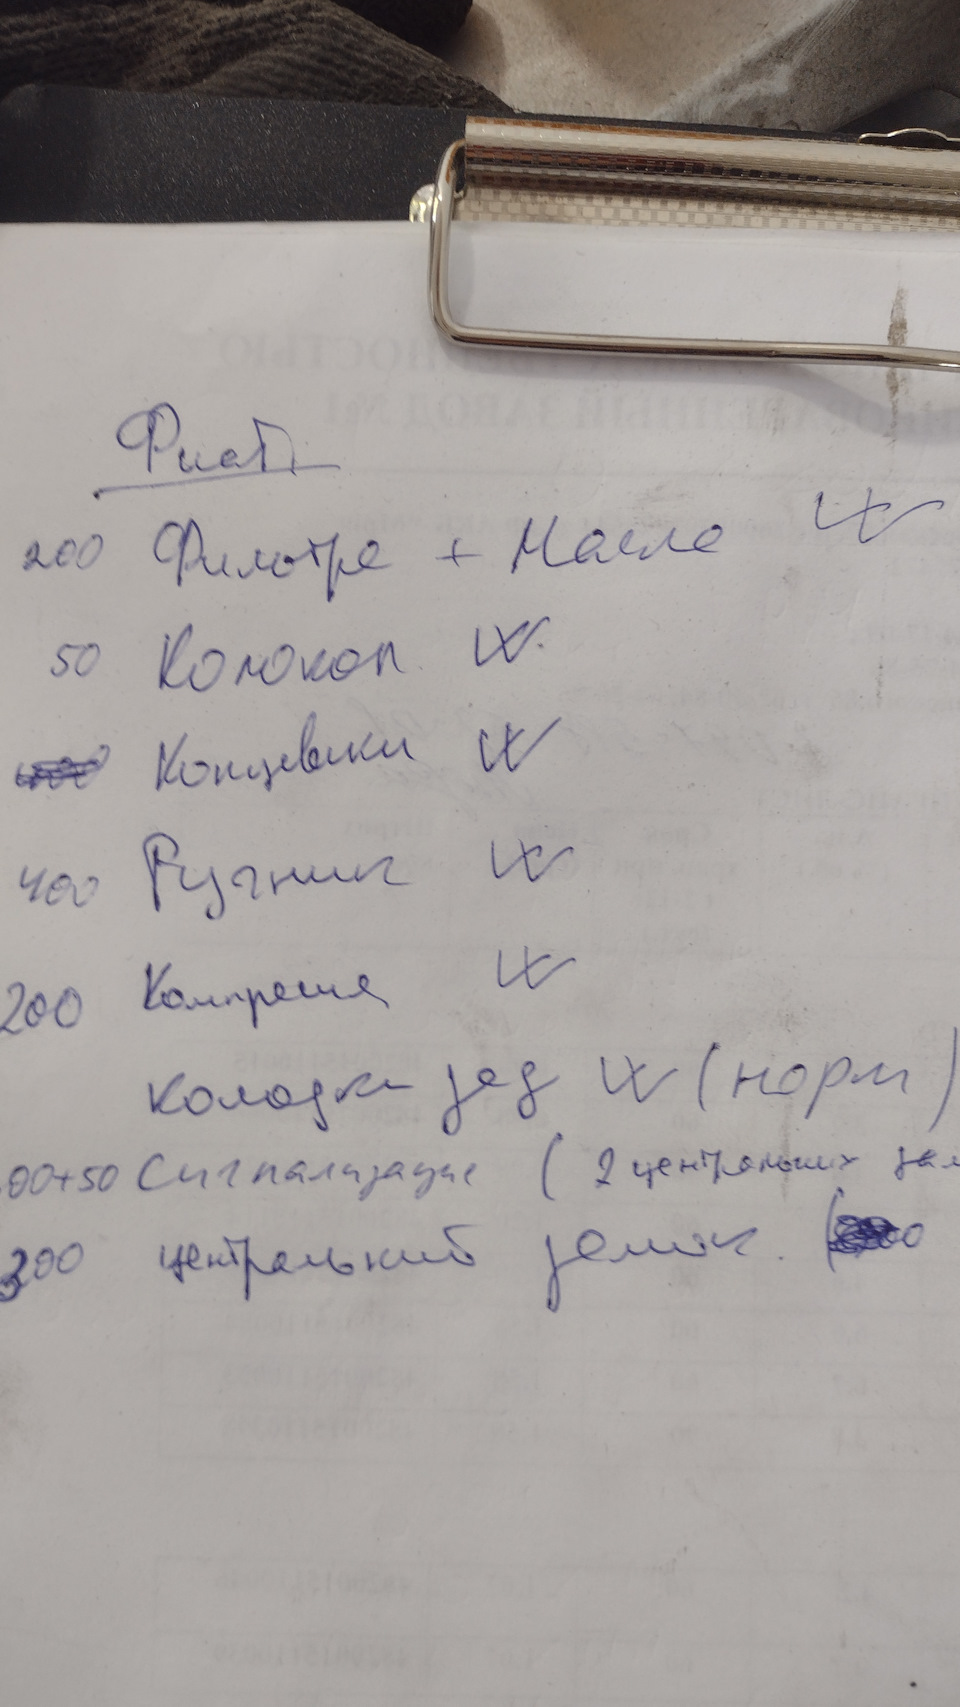 Фиат
200 Фильтра + Масло
50 Колокол
Концевики
400 Ручник
200 Компресия
колодки зад (норм)
00+50 Сигнализация ( 2 центральных зам
300 центральний замок (